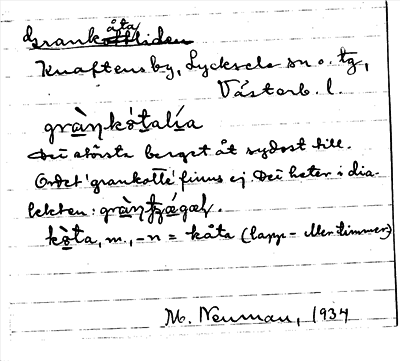 Grankåtaliden
Knaftens by, Lycksele sn o. tg,
Västerb. l.
grànkò̱ta̱lía
Det största berget åt sydost till.
Ordet 'grankotte' finns ej. Det heter i dia-
lekten:
kò̱ta, m., -n = kåta (lapp- eller timmer)
M. Neuman, 1934